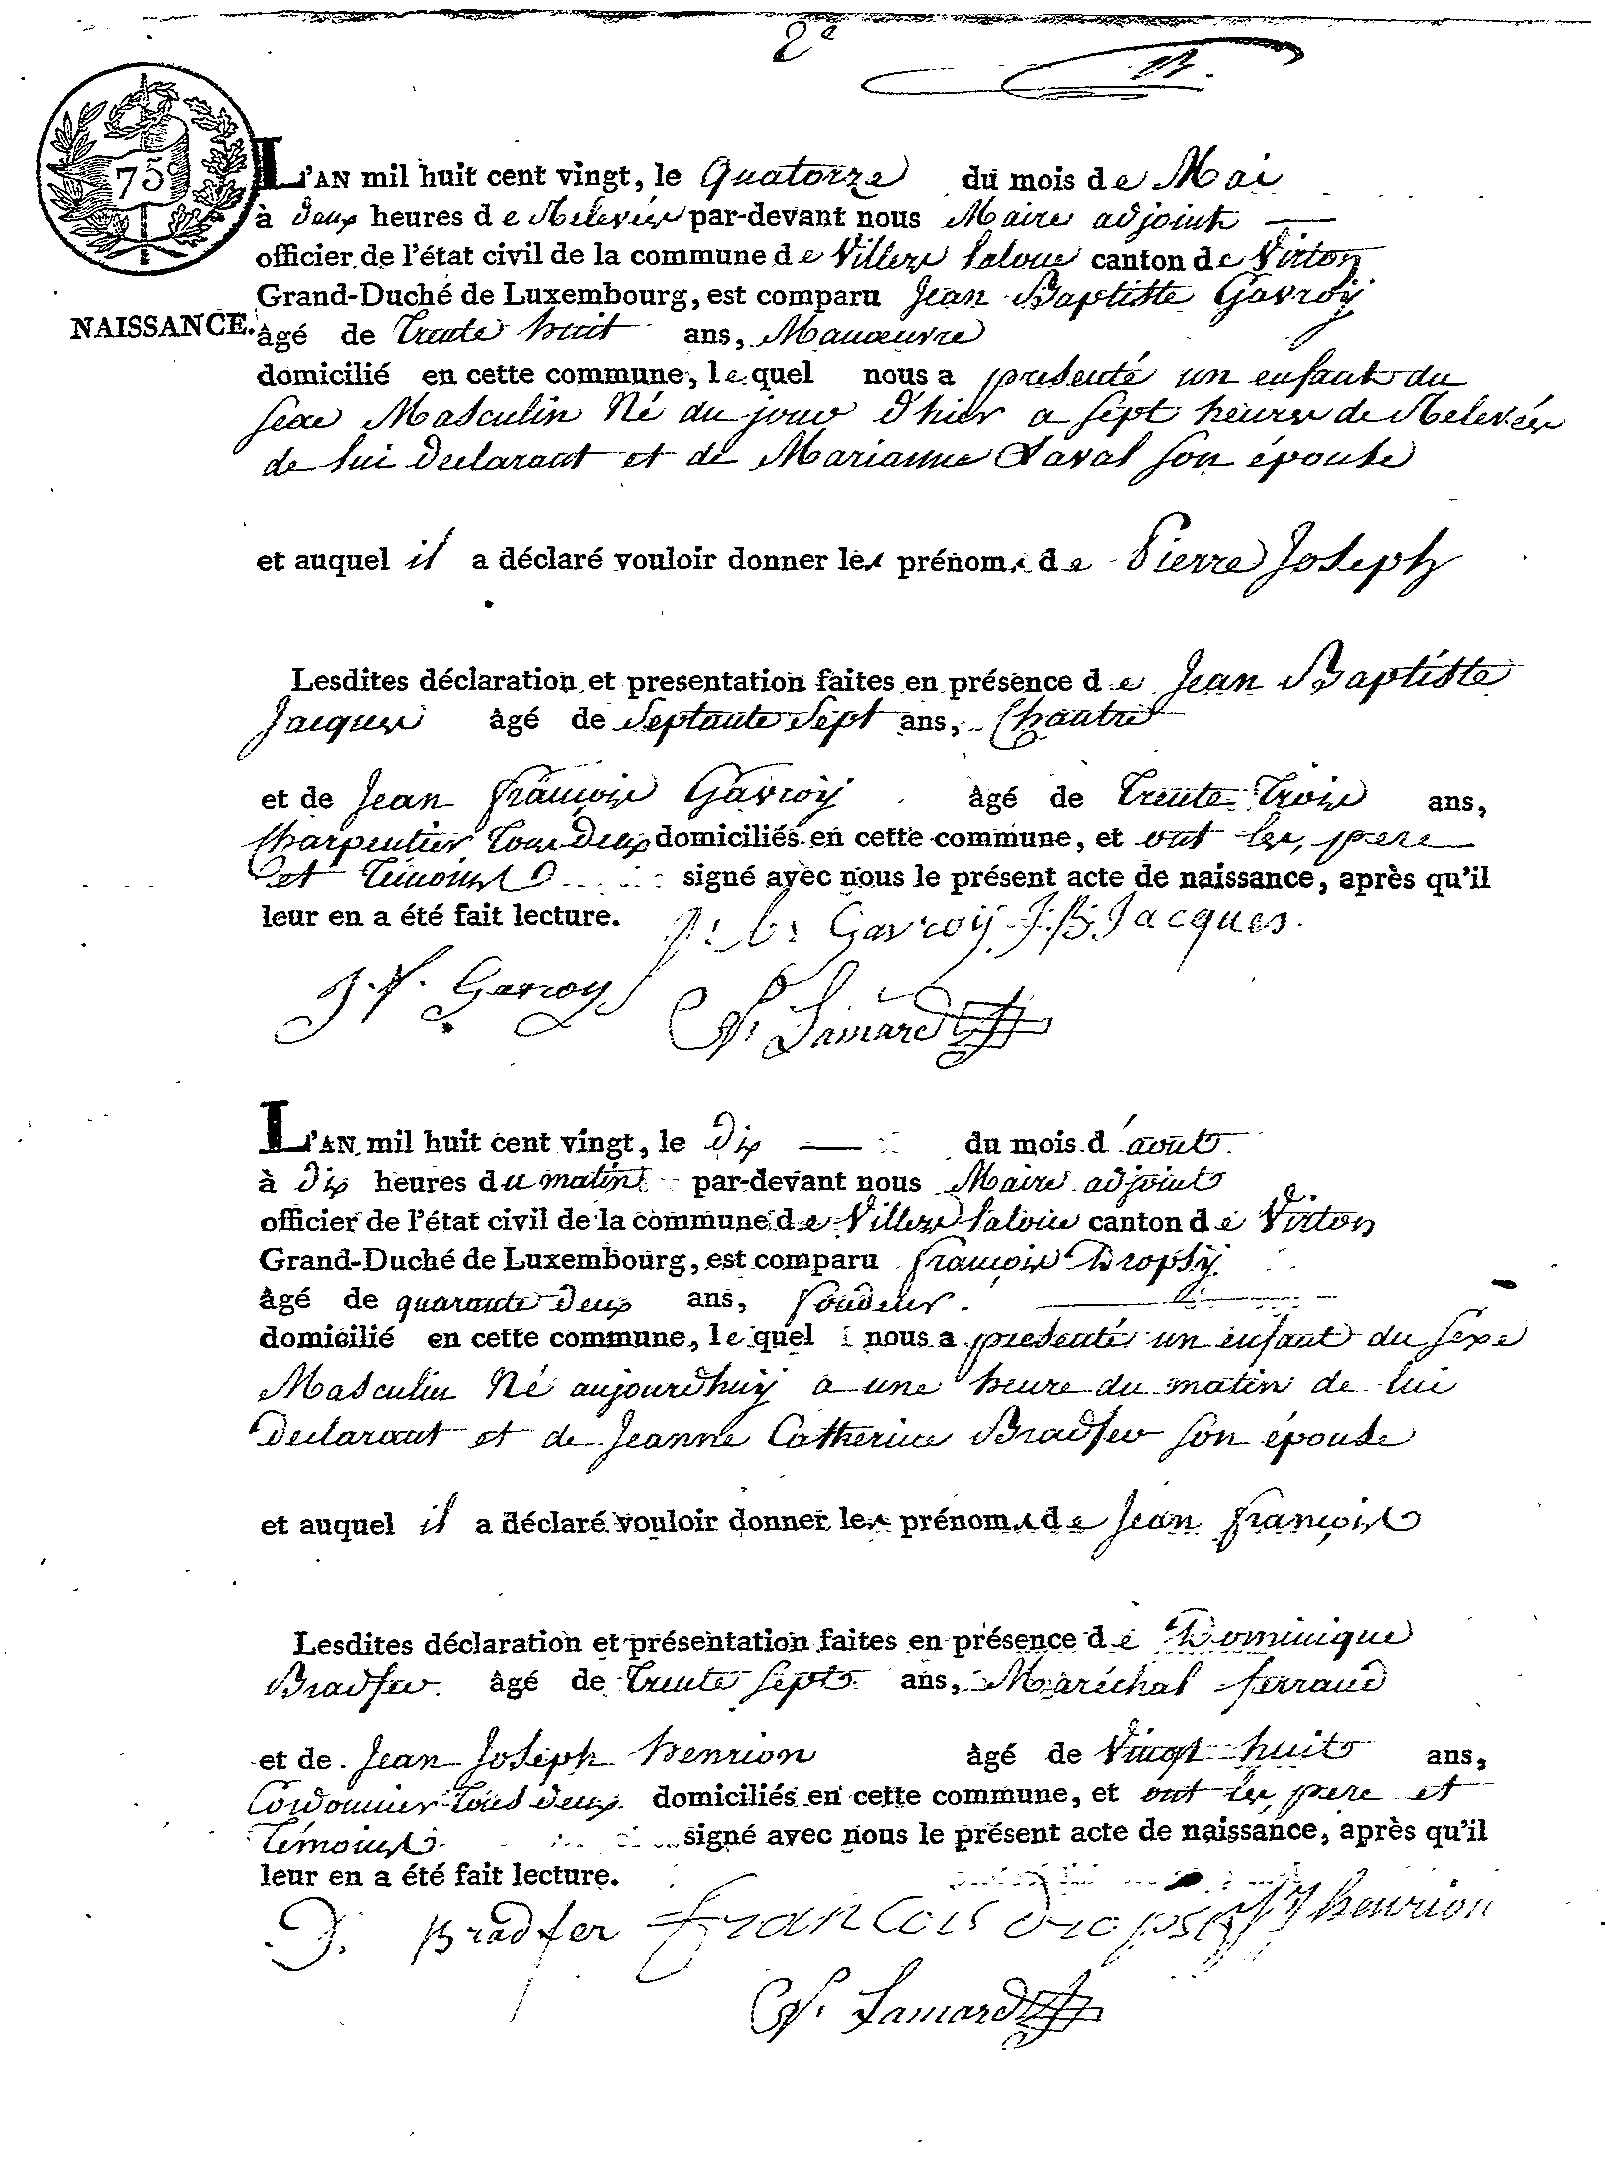 2e
75
L'AN mil huit cent vingt, le Quatorze du mois de Mai
à deux heures de Relevée par-devant nous Maire adjoint
officier de l'état civil de la commune de Villers laloue canton de Virton
Grand-Duché de Luxembourg, est comparu Jean Baptiste Gavroÿ
NAISSANCE. âgé de trente huit ans, Manœuvre
domicilié en cette commune, lequel nous a presenté un enfant du
sexe Masculin Né du jour d'hier a sept heures de Relevée
de lui Declarant et de Marianne Laval son épouse
et auquel il a déclaré vouloir donner les prénoms de Pierre Joseph
Lesdites déclaration et presentation faites en présence de Jean Baptiste
Jacques âgé de Septante Sept ans, Chantre
et de Jean françois Gavroÿ âgé de trente trois ans,
Charpentier tous deux domiciliés en cette commune, et ont les pere
et Témoins signé avec nous le présent acte de naissance, après qu'il
leur en a été fait lecture. J: b: Gavroij J:B: Jacques.
J. f. Gavroy Lamard
L'AN mil huit cent vingt, le Dix du mois d'aout
à Dix heures du matin par-devant nous Maire adjoint
officier de l'état civil de la commune de Villers laloue canton de Virton
Grand-Duché de Luxembourg, est comparu françois Dropsÿ
âgé de quarante Deux ans, soudeur.
domicilié en cette commune, lequel nous a presenté un enfant du sexe
Masculin Né aujourdhuÿ a une heure du matin de lui
Declarant et de Jeanne Catherine Bradfer son épouse
et auquel il a déclaré vouloir donner les prénoms de Jean françois
Lesdites déclaration et présentation faites en présence de Dominique
Bradfer âgé de trente sept ans, Maréchal ferrand
et de Jean Joseph henrion âgé de Vingt huit ans,
Cordonnier tous deux domiciliés en cette commune, et ont les pere et
Témoins signé avec nous le présent acte de naissance, après qu'il
leur en a été fait lecture.
D. Bradfer francois dropsy JJ henrion
Lamard